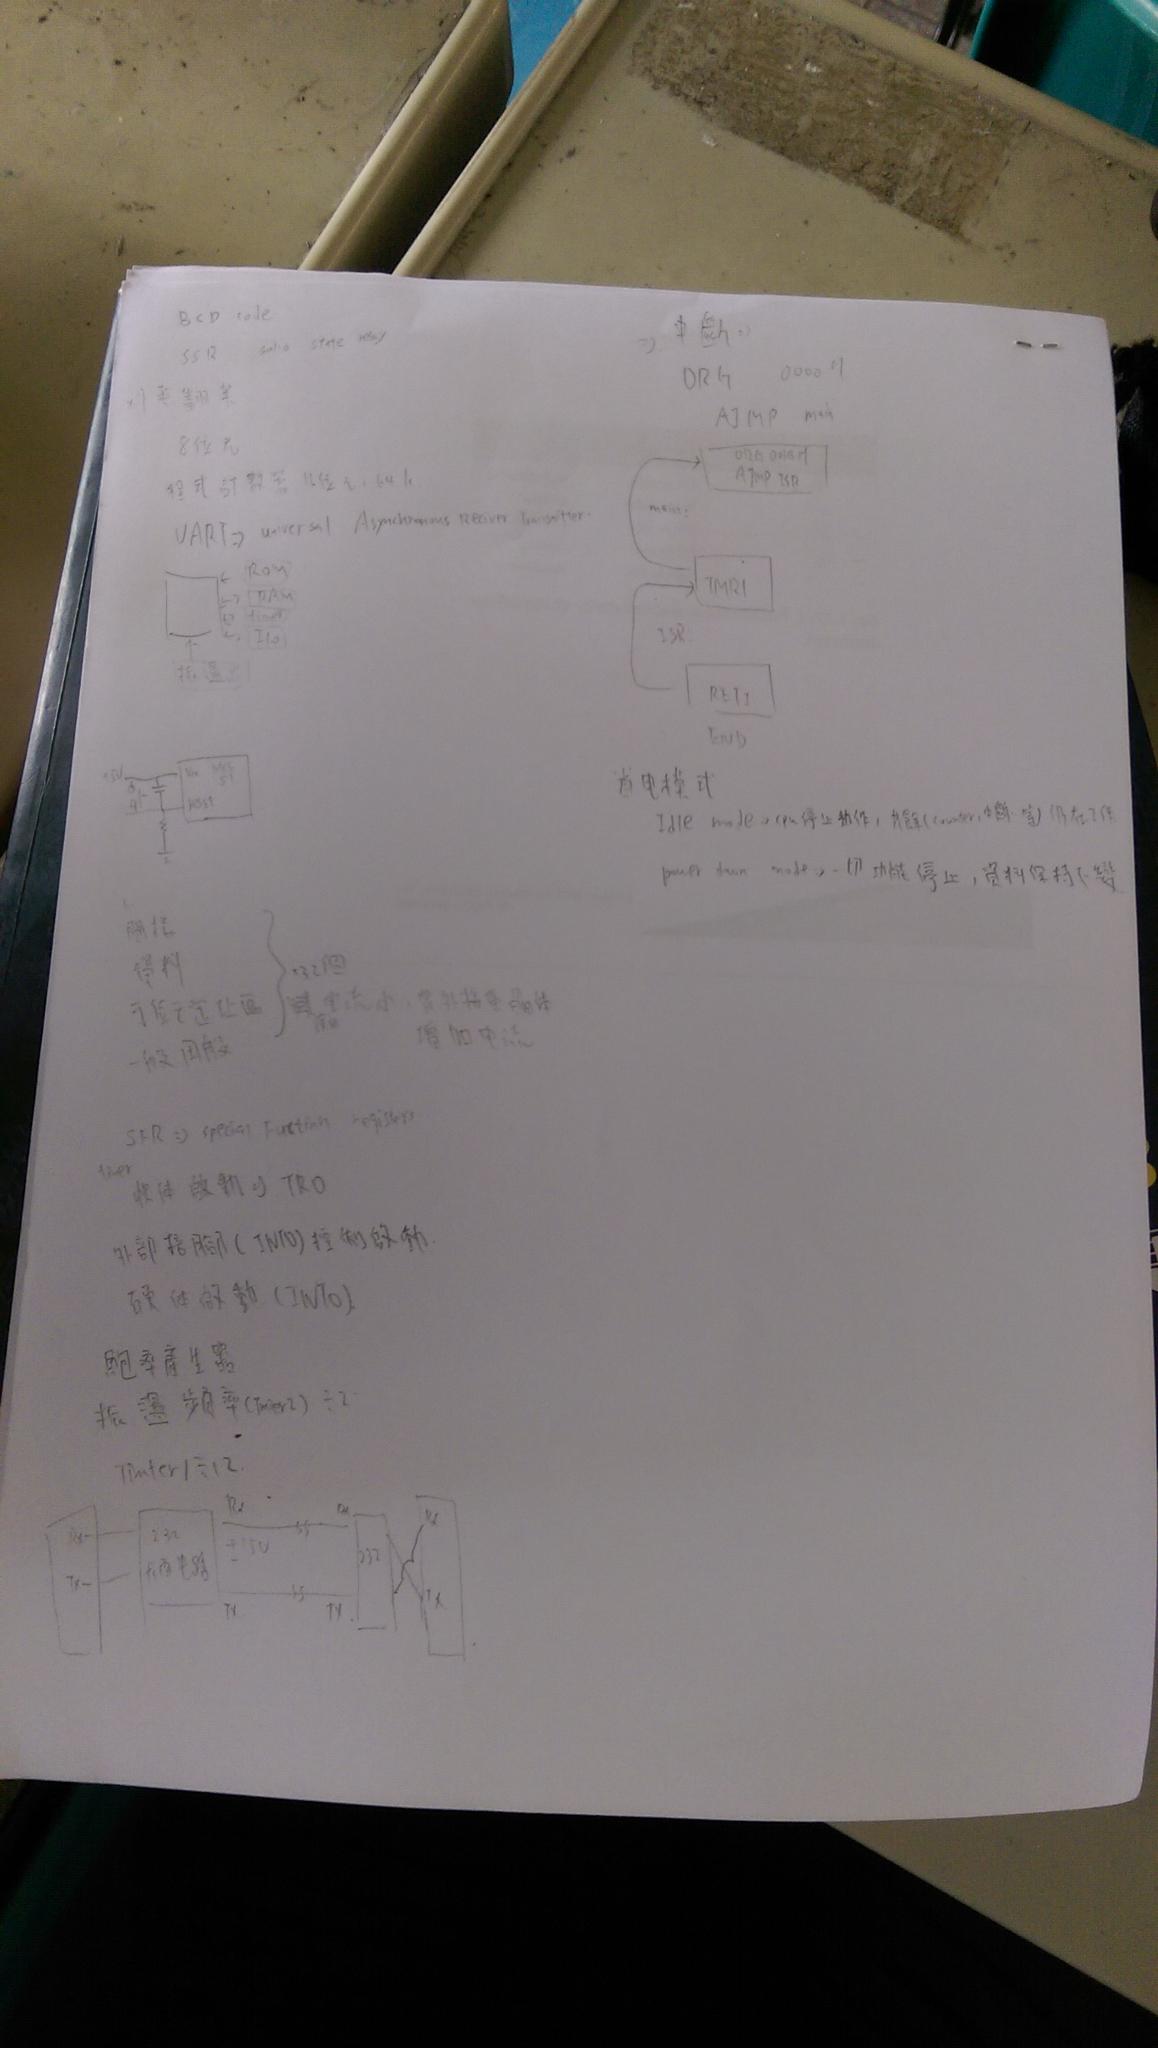 BCD code
SSR solid state relay
8位元
程式計數器 16位元, 64k
UART⇒ universal Asynchronous Reciver Transmitter.
ROM
RAM
timer
I/O
振盪
+5V
Vcc
RESET
一般用般
32個
電流小,
增加電流
SFR ⇒ special Function registers
timer
軟体啟動⇒ TR0
外部接腳(INT0)控制啟動.
硬体啟動(INT0)
鮑率產生器
振盪頻率(Timer2) ÷2
Timer1÷12.
Rx
Tx
232
Rx
±15V
Tx
Rx
Tx
232
Rx
Tx
⇒ 中斷⇒
ORG 0000H
AJMP main
AJMP ISR
main:
TMR1
ISR:
RETI
END
省电模式
Idle mode⇒cpu停止動作, 其餘(counter, 中斷.等) 仍在工作
power down mode⇒一切功能停止, 資料保持不變